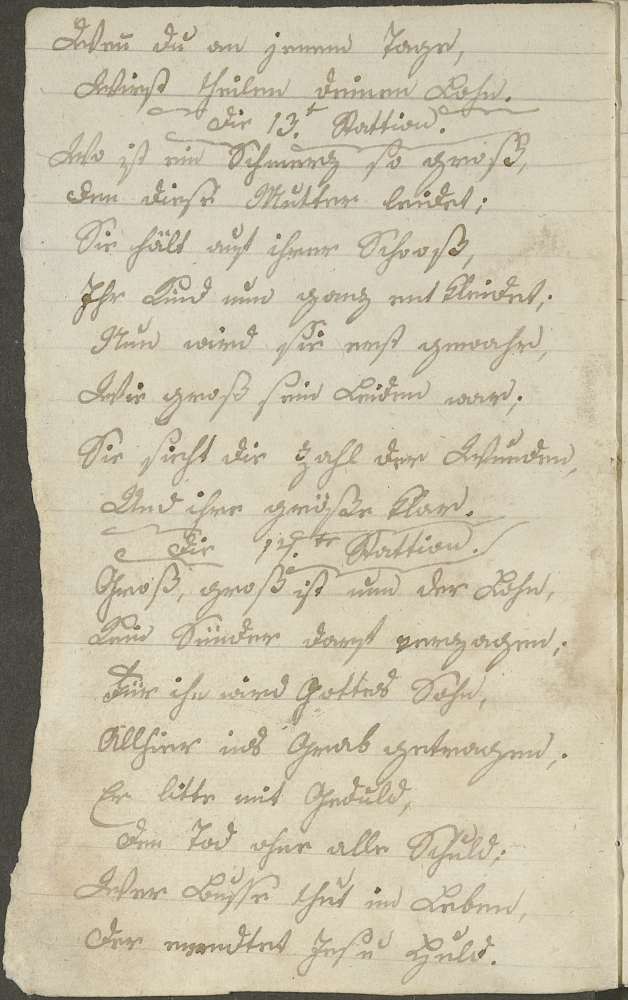 Wen̄ du an jenem Tage,
Wirst theilen deinen Lohn.
Die 13.t Stattion.
Wo ist ein Schmerz so groß,
den diese Mutter leidet;
Sie hält auf ihrer Schooß,
Ihr Kind nun ganz entkleidet;
Nun wird sie erst gewahr,
Wie groß sein Leiden war;
Sie sieht die Zahl der Wunden,
Und ihre größe klar.
Die 14.te Stattion.
Groß, groß ist nun der Lohn,
Kein Sünder darf verzagen;
Für ihn wird Gottes Sohn,
Allhier ins Grab getragen;
Er litte mit Geduld,
Den Tod ohne alle Schuld;
Wer Busse thut im Leben,
Der Jesu Huld.